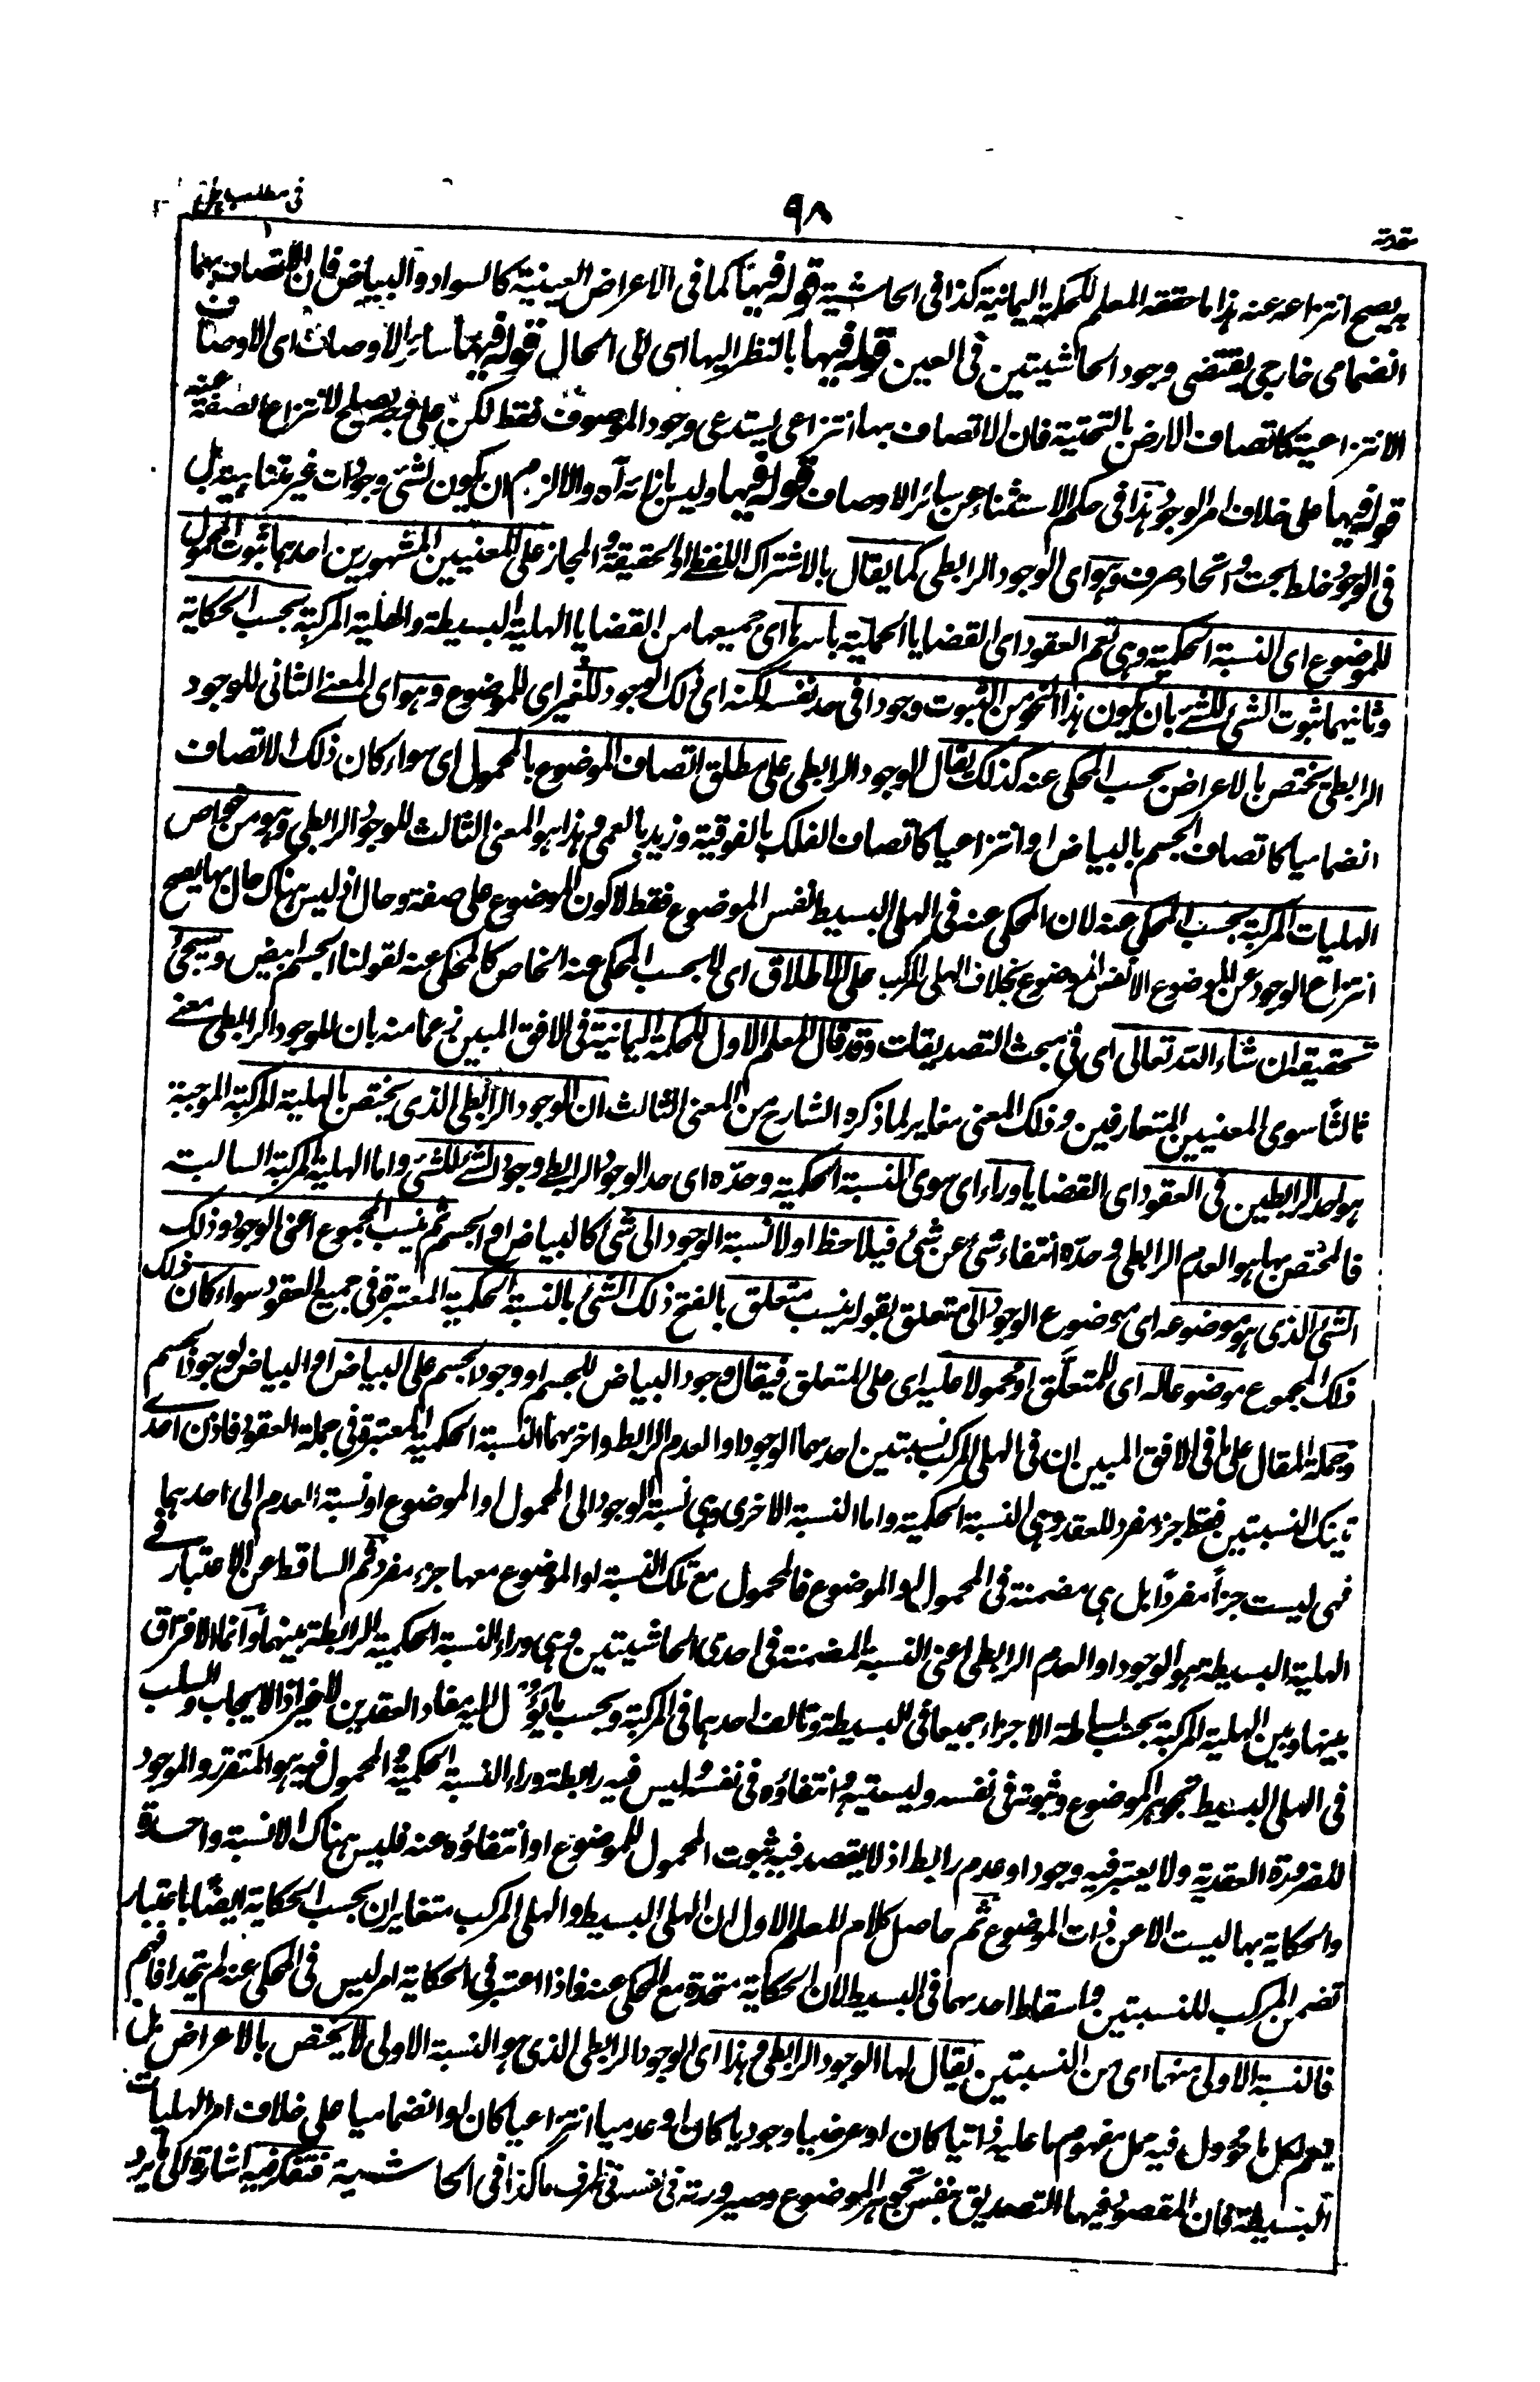 مقدمة
٩٨
فى مطلب
به يصح انتزاعه عنه هذا ما حققه المعلم للحكمة اليمانية كذا فى الحاشية قوله فيها كما فى الاعراض العينية كالسواد والبياض فان الاتصاف بهما
انضمامى خارجى يقتضى وجود الحاشيتين فى العين قوله فيها بالنظر اليها اى الى الحال قوله فيها سائر الاوصاف اى الاوصاف
الانتزاعية كاتصاف الارض بالتحتية فان الاتصاف بها انتزاعى يستدعى وجود الموصوف فقط لكن على وجه يصلح لانتزاع الصفة عنه
قوله فيها على خلاف امر الوجود هذا فى حكم الاستثناء عن سائر الاوصاف قوله فيها وليس بازائه آه والا لزم ان يكون لشئ وجودات غير متناهية بل
فى الوجود خلط بحت واتحاد صرف وهو اى الوجود الرابطى كما يقال بالاشتراك اللفظى او الحقيقة والمجاز على المعنيين المشهورين احدهما ثبوت المحمول
للموضوع اى النسبة الحكمية وهى تعم العقود اى القضايا الحملية باسرها اى جميعها من القضايا الهلية البسيطة والهلية المركبة بحسب الحكاية
وثانيهما ثبوت الشئ للشئ بان يكون هذا النحو من الثبوت وجودا فى حد نفسه لكنه اى ذلك الوجود للغير اى للموضوع وهو اى المعنى الثانى للوجود
الرابطى يختص بالاعراض بحسب المحكى عنه كذلك يقال الوجود الرابطى على مطلق اتصاف الموضوع بالمحمول اى سواء كان ذلك الاتصاف
انضماميا كاتصاف الجسم بالبياض او انتزاعيا كاتصاف الفلك بالفوقية وزيد بالعمى وهذا هو المعنى الثالث للوجود الرابطى وهو من خواص
الهليات المركبة بحسب المحكى عنه لان المحكى عنه فى الهلى البسيط نفس الموضوع فقط لا كون الموضوع على صفة وحال اذ ليس هناك حال بها يصح
انتزاع الوجود عن الموضوع الا نفس الموضوع بخلاف الهلى المركب على الاطلاق اى لا بحسب المحكى عنه الخاص كالمحكى عنه لقولنا الجسم ابيض وسيجئ
تحقيقه ان شاء الله تعالى اى فى مبحث التصديقات وقد قال المعلم الاول للحكمة اليمانية فى الافق المبين زعما منه بان للوجود الرابطى معنى
ثالثا سوى المعنيين المتعارفين وذلك المعنى مغاير لما ذكره الشارح من المعنى الثالث ان الوجود الرابطى الذى يختص بالهلية المركبة الموجبة
هو احد الرابطين فى العقود اى القضايا وراء اى سوى النسبة الحكمية وحده اى حد الوجود الرابط وجود الشئ للشئ واما الهلية المركبة السالبة
فالمختص بها هو العدم الرابطى وحده انتفاء شئ عن شئ فيلاحظ اولا نسبة الوجود الى شئ كالبياض او الجسم ثم ينسب المجموع اعنى الوجود وذلك
الشئ الذى هو موضوعه اى موضوع الوجود الى متعلق بقوله ينسب متعلق بالفتح ذلك الشئ بالنسبة الحكمية المعتبرة فى جميع العقود سواء كان ذلك
ذلك المجموع موضوعا له اى للمتعلَّق او محمولا عليه اى على المتعلق فيقال وجود البياض للجسم او وجود الجسم على البياض او البياض موجود للجسم
وجملة المقال على ما فى الافق المبين ان فى الهلى المركب نسبتين احدهما الوجود او العدم الرابط واخرهما النسبة الحكمية المعتبرة فى جملة العقود فاذن احدى
تينك النسبتين فقط جزء مفرد للعقد وهى النسبة الحكمية واما النسبة الاخرى وهى نسبة الوجود الى المحمول او الموضوع او نسبة العدم الى احدهما
فهى ليست جزأ مفردًا بل هى مضمنة فى المحمول او الموضوع فالمحمول مع تلك النسبة او الموضوع معها جزء مفرد ثم الساقط عن الاعتبار فى
الهلية البسيطة هو الوجود او العدم الرابطى اعنى النسبة المضمنة فى احدى الحاشيتين وهى وراء النسبة الحكمية الرابطة بينهما وانما الافتراق
بينها وبين الهلية المركبة بحسب بساطة الاجزاء جميعا فى البسيطة وتالف احدهما فى المركبة وبحسب ما يؤول اليه مفاد العقدين الاخير اذ الايجاب والسلب
فى الهلى البسيط تجوهر الموضوع وثبوته فى نفسه وليسيته وانتفاؤه فى نفسه وليس فيه رابطة وراء النسبة الحكمية والمحمول فيه هو المتقرر والموجود
للضرورة العقدية ولا يعتبر فيه وجود او عدم رابط اذ لا يقصد فيه ثبوت المحمول للموضوع او انتفاؤه عنه فليس هناك الا نسبة واحدة
والحكاية بها ليست الا عن ذات الموضوع ثم حاصل كلام المعلم الاول ان الهلى البسيط والهلى المركب متغايران بحسب الحكاية ايضًا باعتبار
تضمن المركب للنسبتين واسقاط احدهما فى البسيط لان الحكاية متحدة مع المحكى عنه فاذا اعتبر فى الحكاية امر ليس فى المحكى عنه لم يتحدا فافهم
فالنسبة الاولى منهما اى من النسبتين يقال لها الوجود الرابطى وهذا اى الوجود الرابطى الذى هو النسبة الاولى لا يختص بالاعراض بل
يعم لكل ما مؤول فيه حمل مفهوم ما عليه ذاتيا كان او عرضيا وجوديا كان او عدميا انتزاعيا كان او انضماميا على خلاف امر الهليات
البسيطة فان المقصود فيها التصديق بنفس تجوهر الموضوع وصيرورته فى نفسه فى ظرف ما كذا فى الحاشية فتفكر فيه اشارة الى ما يرد